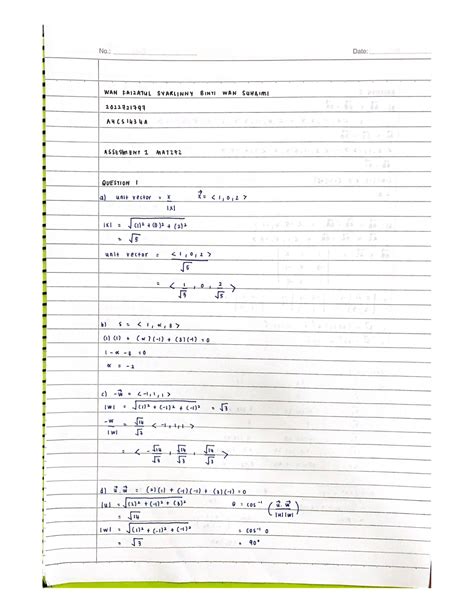 No.: Date:
WAN FAIZATUL SYARLINNY BINTI WAN SUHAIMI
2022921799
A4CS1434A
ASSESSMENT 1 MAT242
QUESTION 1
a) unit vector = x / |x| x⃗ = < 1, 0, 2 >
|x| = √(1)² + (0)² + (2)²
= √5
unit vector = < 1, 0, 2 > / √5
= < 1/√5 , 0 , 2/√5 >
b) s = < 1, α, 3 >
(1)(1) + (α)(-1) + (3)(-1) = 0
1 - α - 3 = 0
α = -2
c) -w⃗ = < -1, 1, 1 >
|w| = √(1)² + (-1)² + (-1)² = √3
-w / |w| = √14 / √3 < -1, 1, 1 >
= < -√14/√3 , √14/√3 , √14/√3 >
d) u⃗.w⃗ = (2)(1) + (-1)(-1) + (3)(-1) = 0
|u| = √(2)² + (-1)² + (3)² θ = cos⁻¹ ( u⃗.w⃗ / |u||w| )
= √14
|w| = √(1)² + (-1)² + (-1)² = cos⁻¹ 0
= √3 = 90°